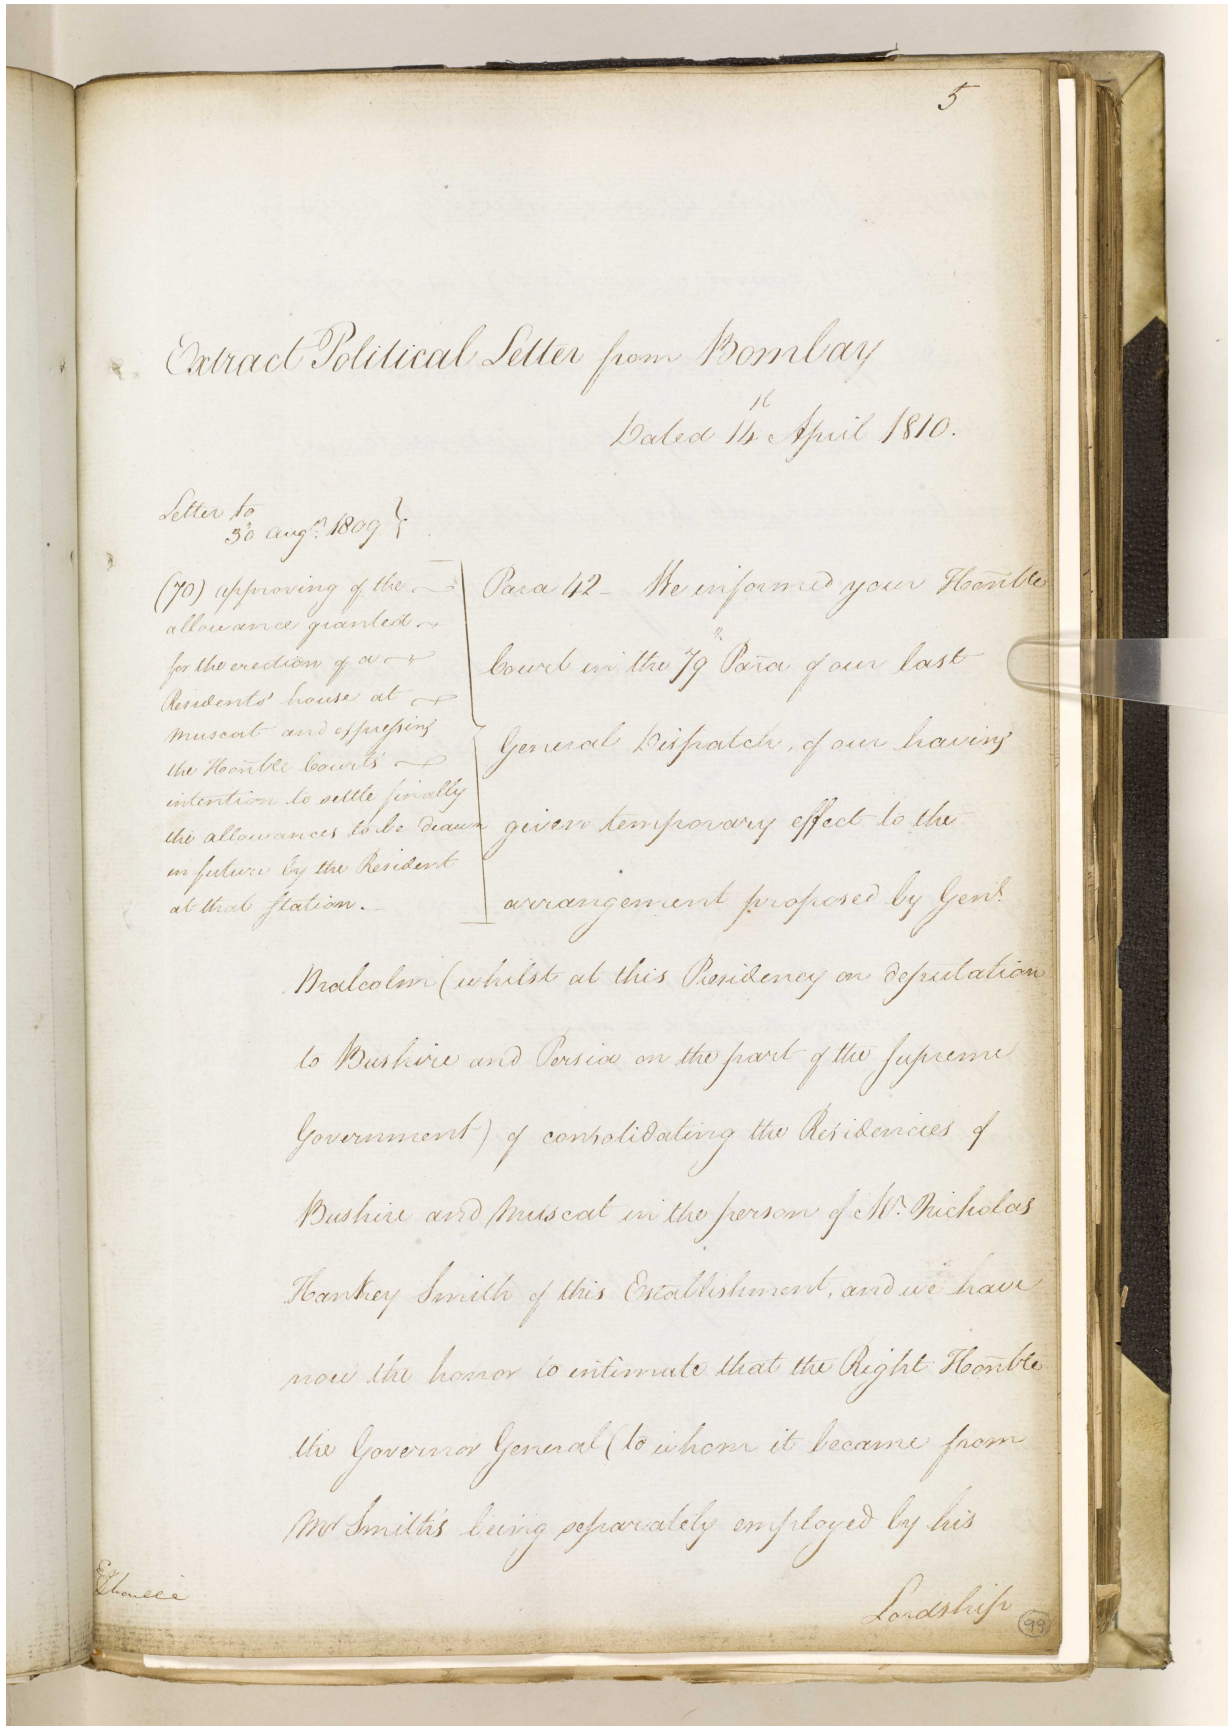 5
Extract Political Letter from Bombay
Dated 14th April 1810.
Letter to
30 Augt. 1809
(70) approving of the
allowance granted
for the erection of a
Residents' house at
Muscat and expressing
the Honble Courts
intention to settle finally
the allowances to be drawn
in future by the Resident
at that station.
Para 42 - We informed your Honble
Court in the 79th Para of our last
General Dispatch, of our having
given temporary effect to the
arrangement proposed by Genl.
Malcolm (whilst at this Presidency on deputation
to Bushire and Persia on the part of the Supreme
Government) of consolidating the Residencies of
Bushire and Muscat in the person of Mr. Nicholas
Hankey Smith of this Establishment, and we have
now the honor to intimate that the Right Honble
the Governor General (to whom it became from
Mr Smith's being separately employed by his
Lordship
99